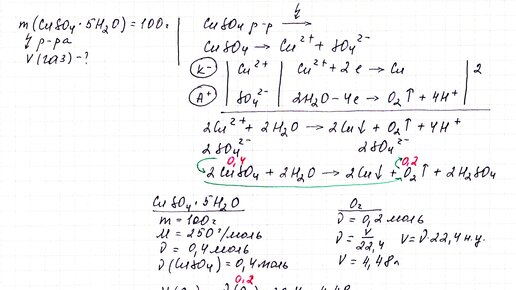 m(CuSO₄·5H₂O)=100г
↯ р-ра
V(газ)-?
CuSO₄ р-р ↯→
CuSO₄ → Cu²⁺ + SO₄²⁻
K⁻ | Cu²⁺ | Cu²⁺ + 2e → Cu | 2
A⁺ | SO₄²⁻ | 2H₂O - 4e → O₂↑ + 4H⁺
2Cu²⁺ + 2H₂O → 2Cu↓ + O₂↑ + 4H⁺
2SO₄²⁻ 2SO₄²⁻
0,4 0,2
2CuSO₄ + 2H₂O → 2Cu↓ + O₂↑ + 2H₂SO₄
CuSO₄·5H₂O
m = 100г
M = 250г/моль
ν = 0,4моль
ν(CuSO₄) = 0,4моль
O₂
ν = 0,2моль
ν = V/22,4 V = ν·22,4 н.у.
V = 4,48л
0,2